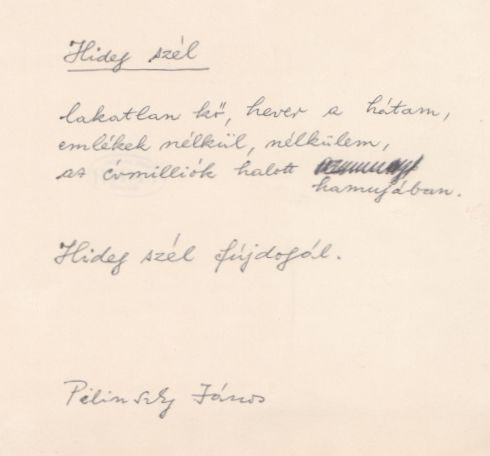 Hideg szél
lakatlan kő, hever a hátam,
emlékek nélkül, nélkülem,
az évmilliók halott
hamujában.
Hideg szél fújdogál.
Pilinszky János